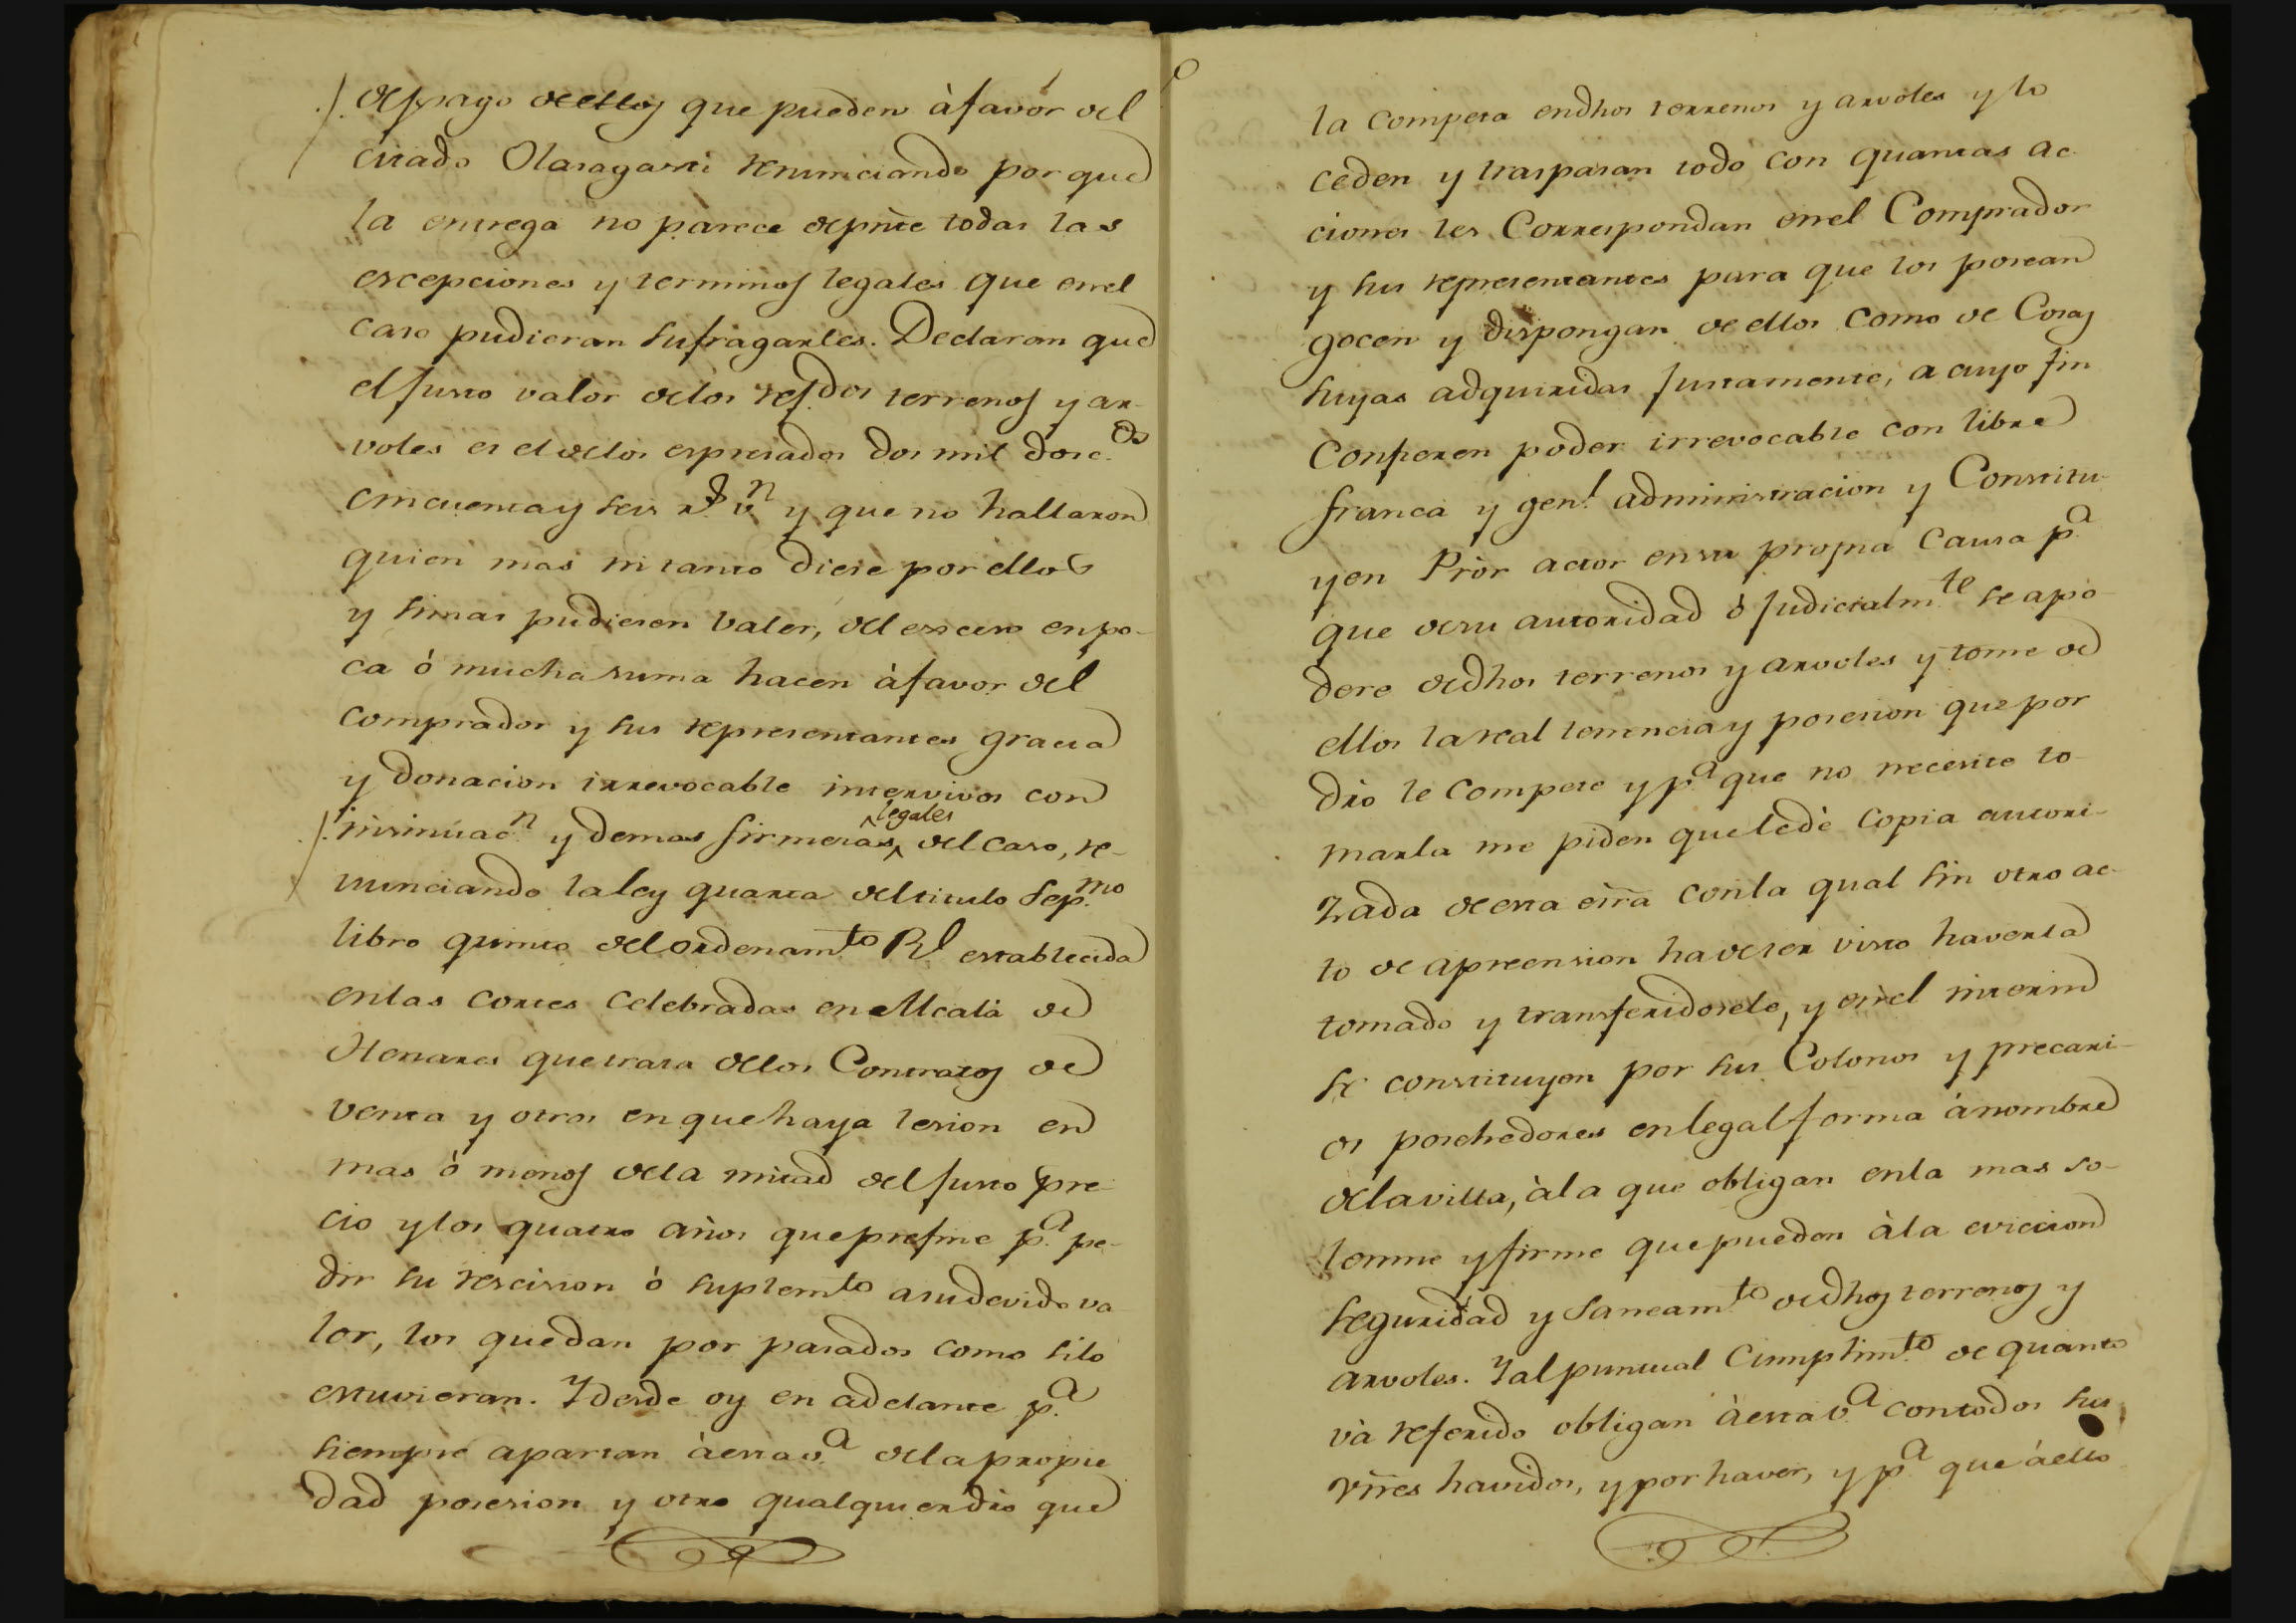 de pago de ellos que pueden à favor del
citado Olasagarri renunciando por que
la entrega no parece de pñte todas las
escepciones y terminos legales que en el
caso pudieran sufragarles. Declaran que
el justo valor de los refdos terrenos y ar-
voles es el de los espresados dos mil dosc.os
cincuenta y seis r.s v.n y que no hallaron
quien mas ni tanto diese por ellos
y si mas pudiesen valer, del esceso en po-
ca ò mucha suma hacen à favor del
comprador y sus representantes gracia
y donacion irrevocable intervivos con
insinuac.n y demas firmezas legales del caso, re-
nunciando la ley quarta del titulo sep.mo
libro quinto del ordenam.to R.l establecida
en las cortes celebradas en Alcalà de
Henares que trata de los Contratos de
venta y otros en que haya lesion en
mas ò menos de la mitad del justo pre-
cio y los quatro años que prefine p.a pe-
dir su rescision ò suplem.to a su devido va
lor, los que dan por pasados como si lo
estuvieran. Y desde oy en adelante p.a
siempre apartan à esta v.a de la propie
dad posesion y otro qualquier dro que
la competa en dhos terrenos y arvoles y lo
ceden y traspasan todo con quantas ac
ciones les Correspondan en el Comprador
y sus representantes para que los posean
gocen y dispongan de ellos como de Cosas
suyas adquiridas justamente, a cuyo fin
Confieren poder irrevocable con libre
franca y gen.l administracion y Constitu-
yen Pròr actor en su propia Causa p.a
que de su autoridad ò judicialm.te se apo-
dere de dhos terrenos y arvoles y tome de
ellos la real tenencia y posesion que por
dro le compete y p.a que no necesite to-
marla me piden que le dè copia autori-
zada de esta esrã con la qual sin otro ac-
to de apreension ha de ser visto haverla
tomado y transferidosele, y en el interin
se constituyen por sus Colonos y precari-
os posehedores en legal forma à nombre
de la villa, à la que obligan en la mas so-
lemne y firme que pueden à la eviccion
seguridad y saneam.to de dhos terrenos y
arvoles. Y al puntual Cumplim.to de quanto
và referido obligan à esta v.a con todos sus
vñes havidos, y por haver, y p.a que à ello